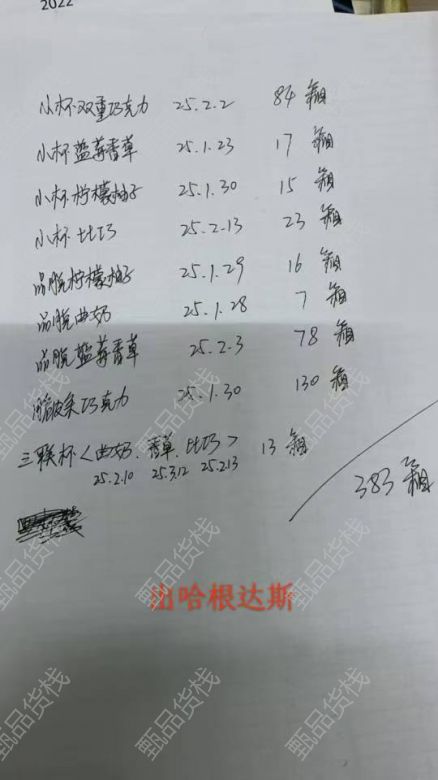 2022
小杯双重巧克力 25.2.2 84箱
小杯蓝莓香草 25.1.23 17箱
小杯柠檬柚子 25.1.30 15箱
小杯比巧 25.2.13 23箱
品脱柠檬柚子 25.1.29 16箱
品脱曲奶 25.1.28 7箱
品脱蓝莓香草 25.2.3 78箱
脆皮条巧克力 25.1.30 130箱
三联杯<曲奶.香草.比巧> 13箱
25.2.10 25.3.12 25.2.13
383箱
出哈根达斯
甄品货栈